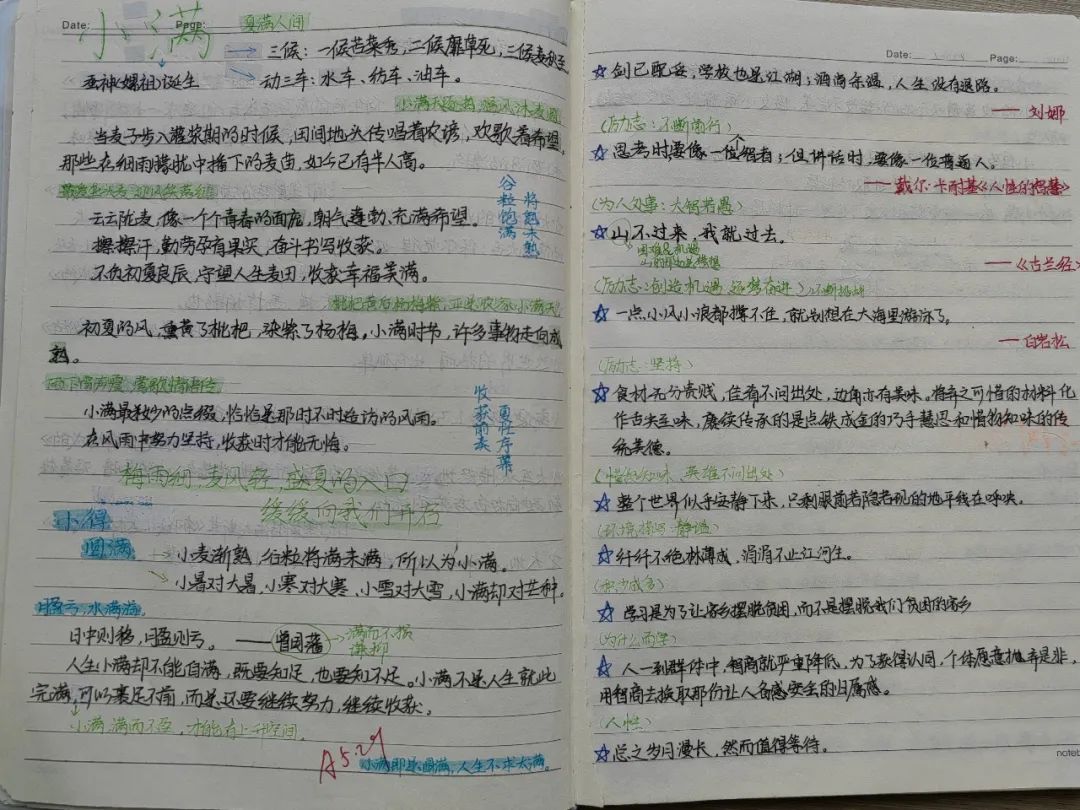 Date:
Page:
小满
夏满人间
三候：一候苦菜秀，二候靡草死，三候麦秋至
蚕神(嫘祖)诞生
动三车：水车、纺车、油车。
小满
当麦子步入灌浆期的时候，田间地头传唱着农谚，欢歌着希望，
那些在细雨朦胧中播下的麦苗，如今已有半人高。
云云陇麦，像一个个青春的面庞，朝气蓬勃、充满希望。
擦擦汗，勤劳孕育果实，奋斗书写收获。
不负初夏良辰，守望人生麦田，收获幸福美满。
谷粒饱满
将熟未熟
枇杷黄后杨梅紫，正是农家小满天
初夏的风，熏黄了枇杷，染紫了杨梅，小满时节，许多事物走向成
熟。
小满最美妙的点缀，恰恰是那时不时造访的风雨。
在风雨中努力坚持，收获时才能无悔。
收获前奏
夏季序幕
梅雨细，麦风轻，盛夏的入口
缓缓向我们开启
小得
圆满
小麦渐熟，谷粒将满未满，所以为小满。
小暑对大暑，小寒对大寒，小雪对大雪，小满却对芒种。
月盈亏，水满溢
日中则移，月盈则亏。——曾国藩
满而不损
谦抑
人生小满却不能自满，既要知足，也要知不足。小满不是人生就此
完满，可以裹足不前，而是还要继续努力，继续收获。
小满，满而不盈，才能有上升空间。
A 5.29
小满即是圆满，人生不求太满。
Date:
Page:
☆剑已配妥，学校也是江湖；酒尚余温，人生没有退路。
——刘娜
(励志：不断前行)
☆思考时，要像一位智者；但讲话时，要像一位普通人。
——戴尔·卡耐基《人性的弱点》
(为人处事：大智若愚)
☆山不过来，我就过去。
困难&机遇
——《古兰经》
(励志：创造机遇，逐梦奋进)
☆一点小风小浪都撑不住，就别想在大海里游泳了。
——白岩松
(励志：坚持)
☆食材无分贵贱，佳肴不问出处，边角亦有美味，将弃之可惜的材料化
作舌尖至味，赓续传承的是点铁成金的巧手慧思和惜物知味的传
统美德。
(惜物知味，英雄不问出处)
☆整个世界似乎安静下来，只剩眼前若隐若现的地平线在呼唤。
(环境描写·静谧)
☆纤纤不绝林薄成，涓涓不止江河生。
(积少成多)
☆学习是为了让家乡摆脱贫困，而不是摆脱我们贫困的家乡
(为什么而学)
☆人一到群体中，智商就严重降低，为了获得认同，个体愿意抛弃是非，
用智商去换取那份让人备感安全的归属感。
(人性)
☆总之岁月漫长，然而值得等待。
noteb